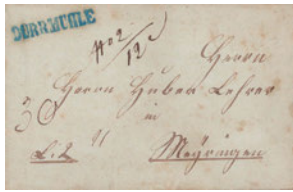 DÜRRMÜHLE
No 2/12
Herrn
Herrn Huber Lehrer
in
Meyringen